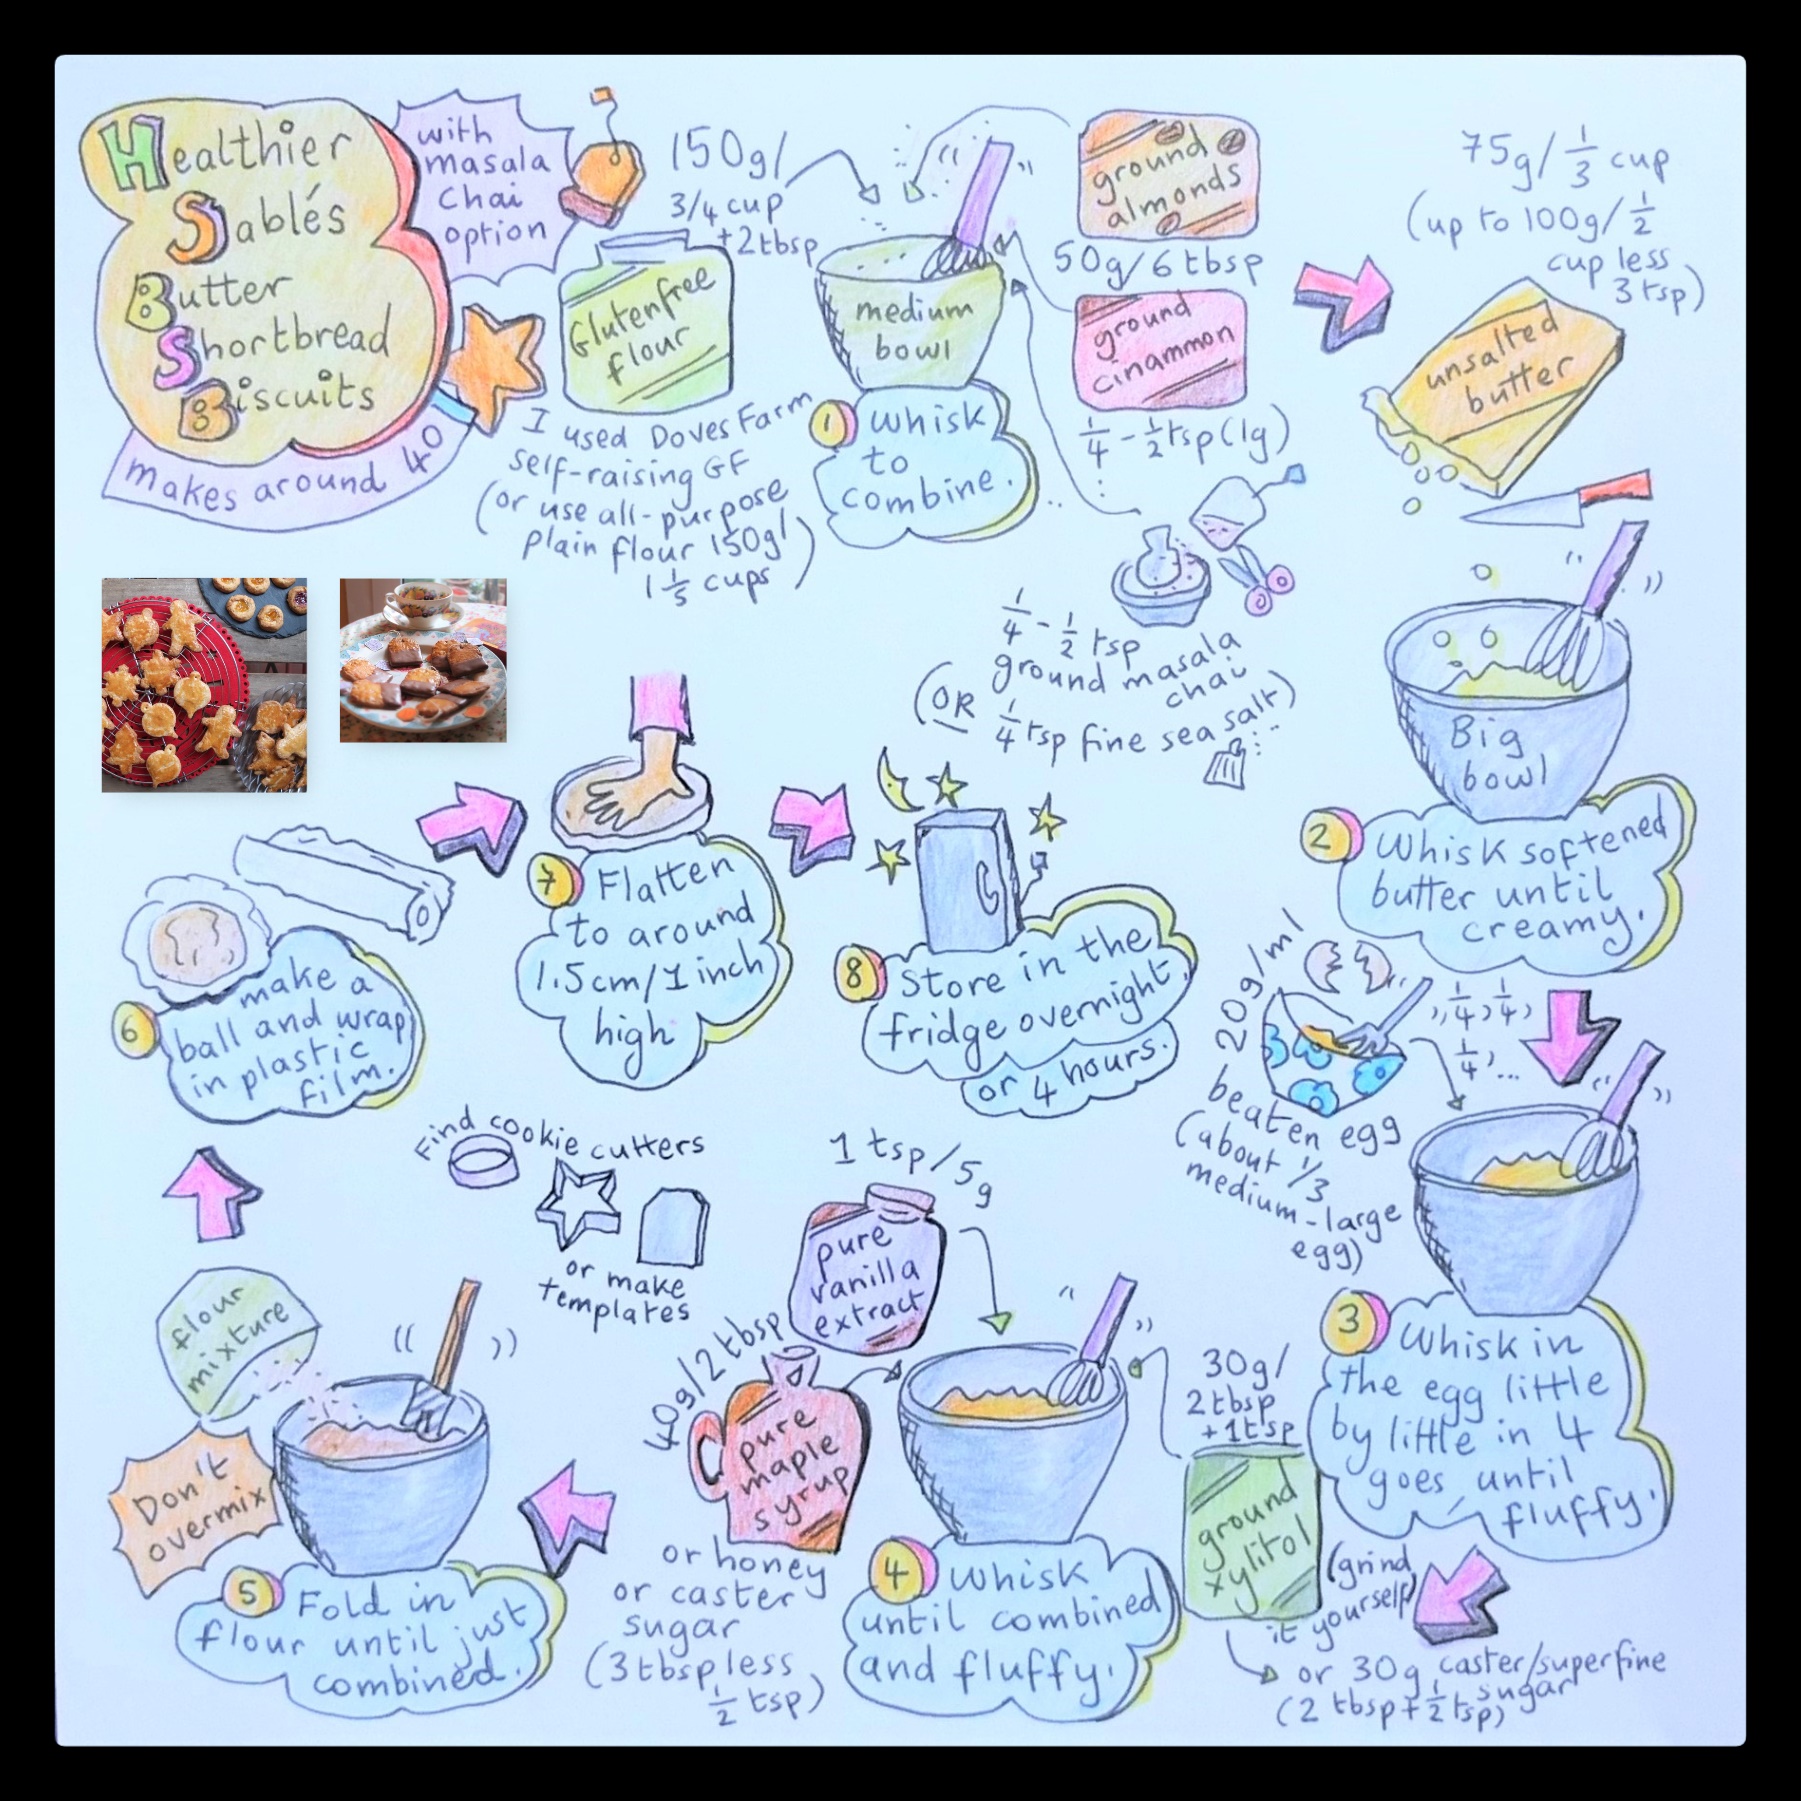 Healthier
Sablés
Butter
Shortbread
Biscuits
makes around 40
with
masala
Chai
option
150g/
3/4 cup
+2tbsp
Glutenfree
flour
I used Doves Farm
self-raising GF
(or use all-purpose
plain flour 150g/
1 1/5 cups)
medium
bowl
1 Whisk
to
combine.
ground
almonds
50g/6 tbsp
ground
cinammon
1/4 - 1/2 tsp (1g)
1/4 - 1/2 tsp
ground masala
chai
(OR 1/4 tsp fine sea salt)
75g/ 1/3 cup
(up to 100g/ 1/2
cup less
3 tsp)
unsalted
butter
Big
bowl
2 Whisk softened
butter until
creamy.
20g/ml
beaten egg
(about 1/3
medium-large
egg)
1/4, 1/4,
1/4...
3 Whisk in
the egg little
by little in 4
goes until
fluffy.
30g/
2 tbsp
+1tsp
ground
xylitol
(grind
it yourself)
or 30g caster/superfine
sugar
(2 tbsp + 1/2 tsp)
1 tsp/5g
pure
vanilla
extract
40g/2 tbsp
pure
maple
syrup
or honey
or caster
sugar
(3 tbsp less
1/2 tsp)
4 Whisk
until combined
and fluffy.
flour
mixture
Don't
overmix
5 Fold in
flour until just
combined.
6 make a
ball and wrap
in plastic
film.
Find cookie cutters
or make
templates
7 Flatten
to around
1.5cm/1 inch
high
8 Store in the
fridge overnight,
or 4 hours.